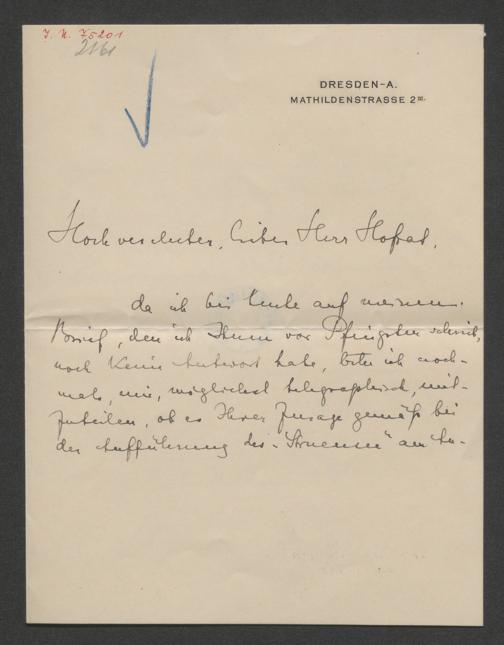 J. N. 75201
2161
DRESDEN-A.
MATHILDENSTRASSE 2III.
Hochverehrter, lieber Herr Hofrat,
da ich bis heute auf meinen
Brief, den ich Ihnen vor Pfingsten schrieb,
noch keine Antwort habe, bitte ich noch-
mals, mir, möglichst telegraphisch, mit-
zuteilen, ob es Ihrer Zusage gemäß bei
der Aufführung des "Struensee" am An-